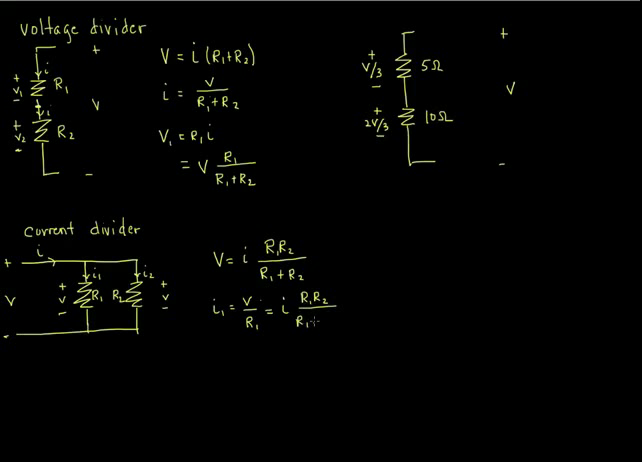 voltage divider
+
i
+ V₁ - R₁
i
V
+ V₂ - R₂
-
V = i (R₁+R₂)
i = V / (R₁+R₂)
V₁ = R₁ i
= V R₁ / (R₁+R₂)
+
+ V/3 - 5Ω
V
+ 2V/3 - 10Ω
-
current divider
i
+
i₁ i₂
V + V - R₁ R₂ + V -
-
V = i R₁R₂ / (R₁+R₂)
i₁ = V / R₁ = i R₁R₂ / (R₁+